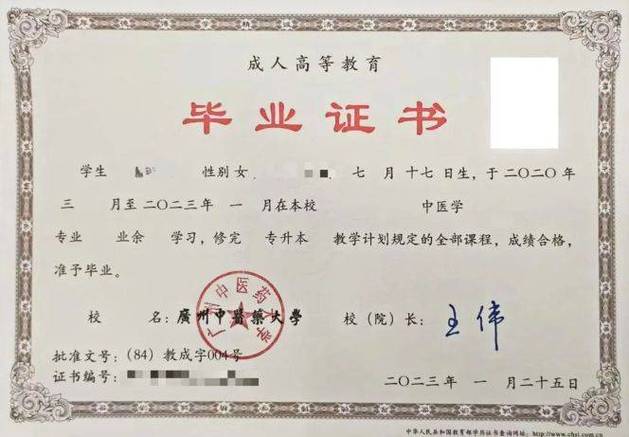 成人高等教育
毕业证书
学生 性别 女 七 月 十七 日生，于 二〇二〇 年
三 月至 二〇二三 年 一 月在本校 中医学
专业 业余 学习，修完 专升本 教学计划规定的全部课程，成绩合格，
准予毕业。
校 名：廣州中醫藥大學 校（院）长：王伟
广州中医药大学
批准文号：（84）教成字004号
证书编号：
二〇二三年 一 月二十五日
中华人民共和国教育部学历证书查询网址：http://www.chsi.com.cn